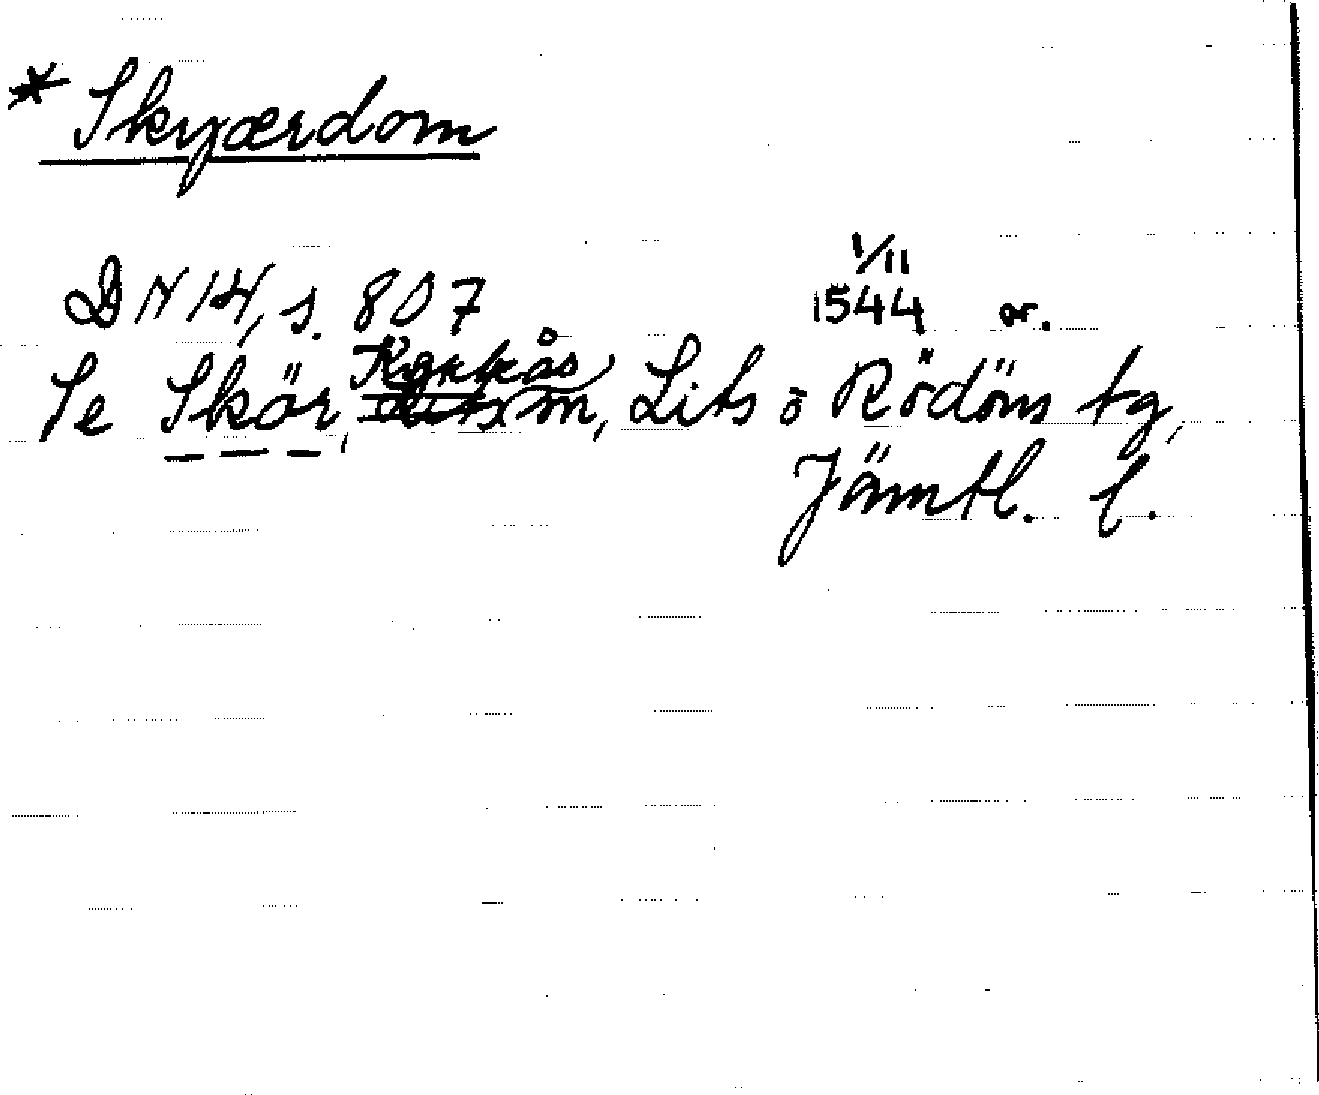 * Skyærdom
DN 14, s. 807 1/11 1544 or.
Se Skör, Kyrkås sn, Lits o Rödöns tg,
Jämtl. l.